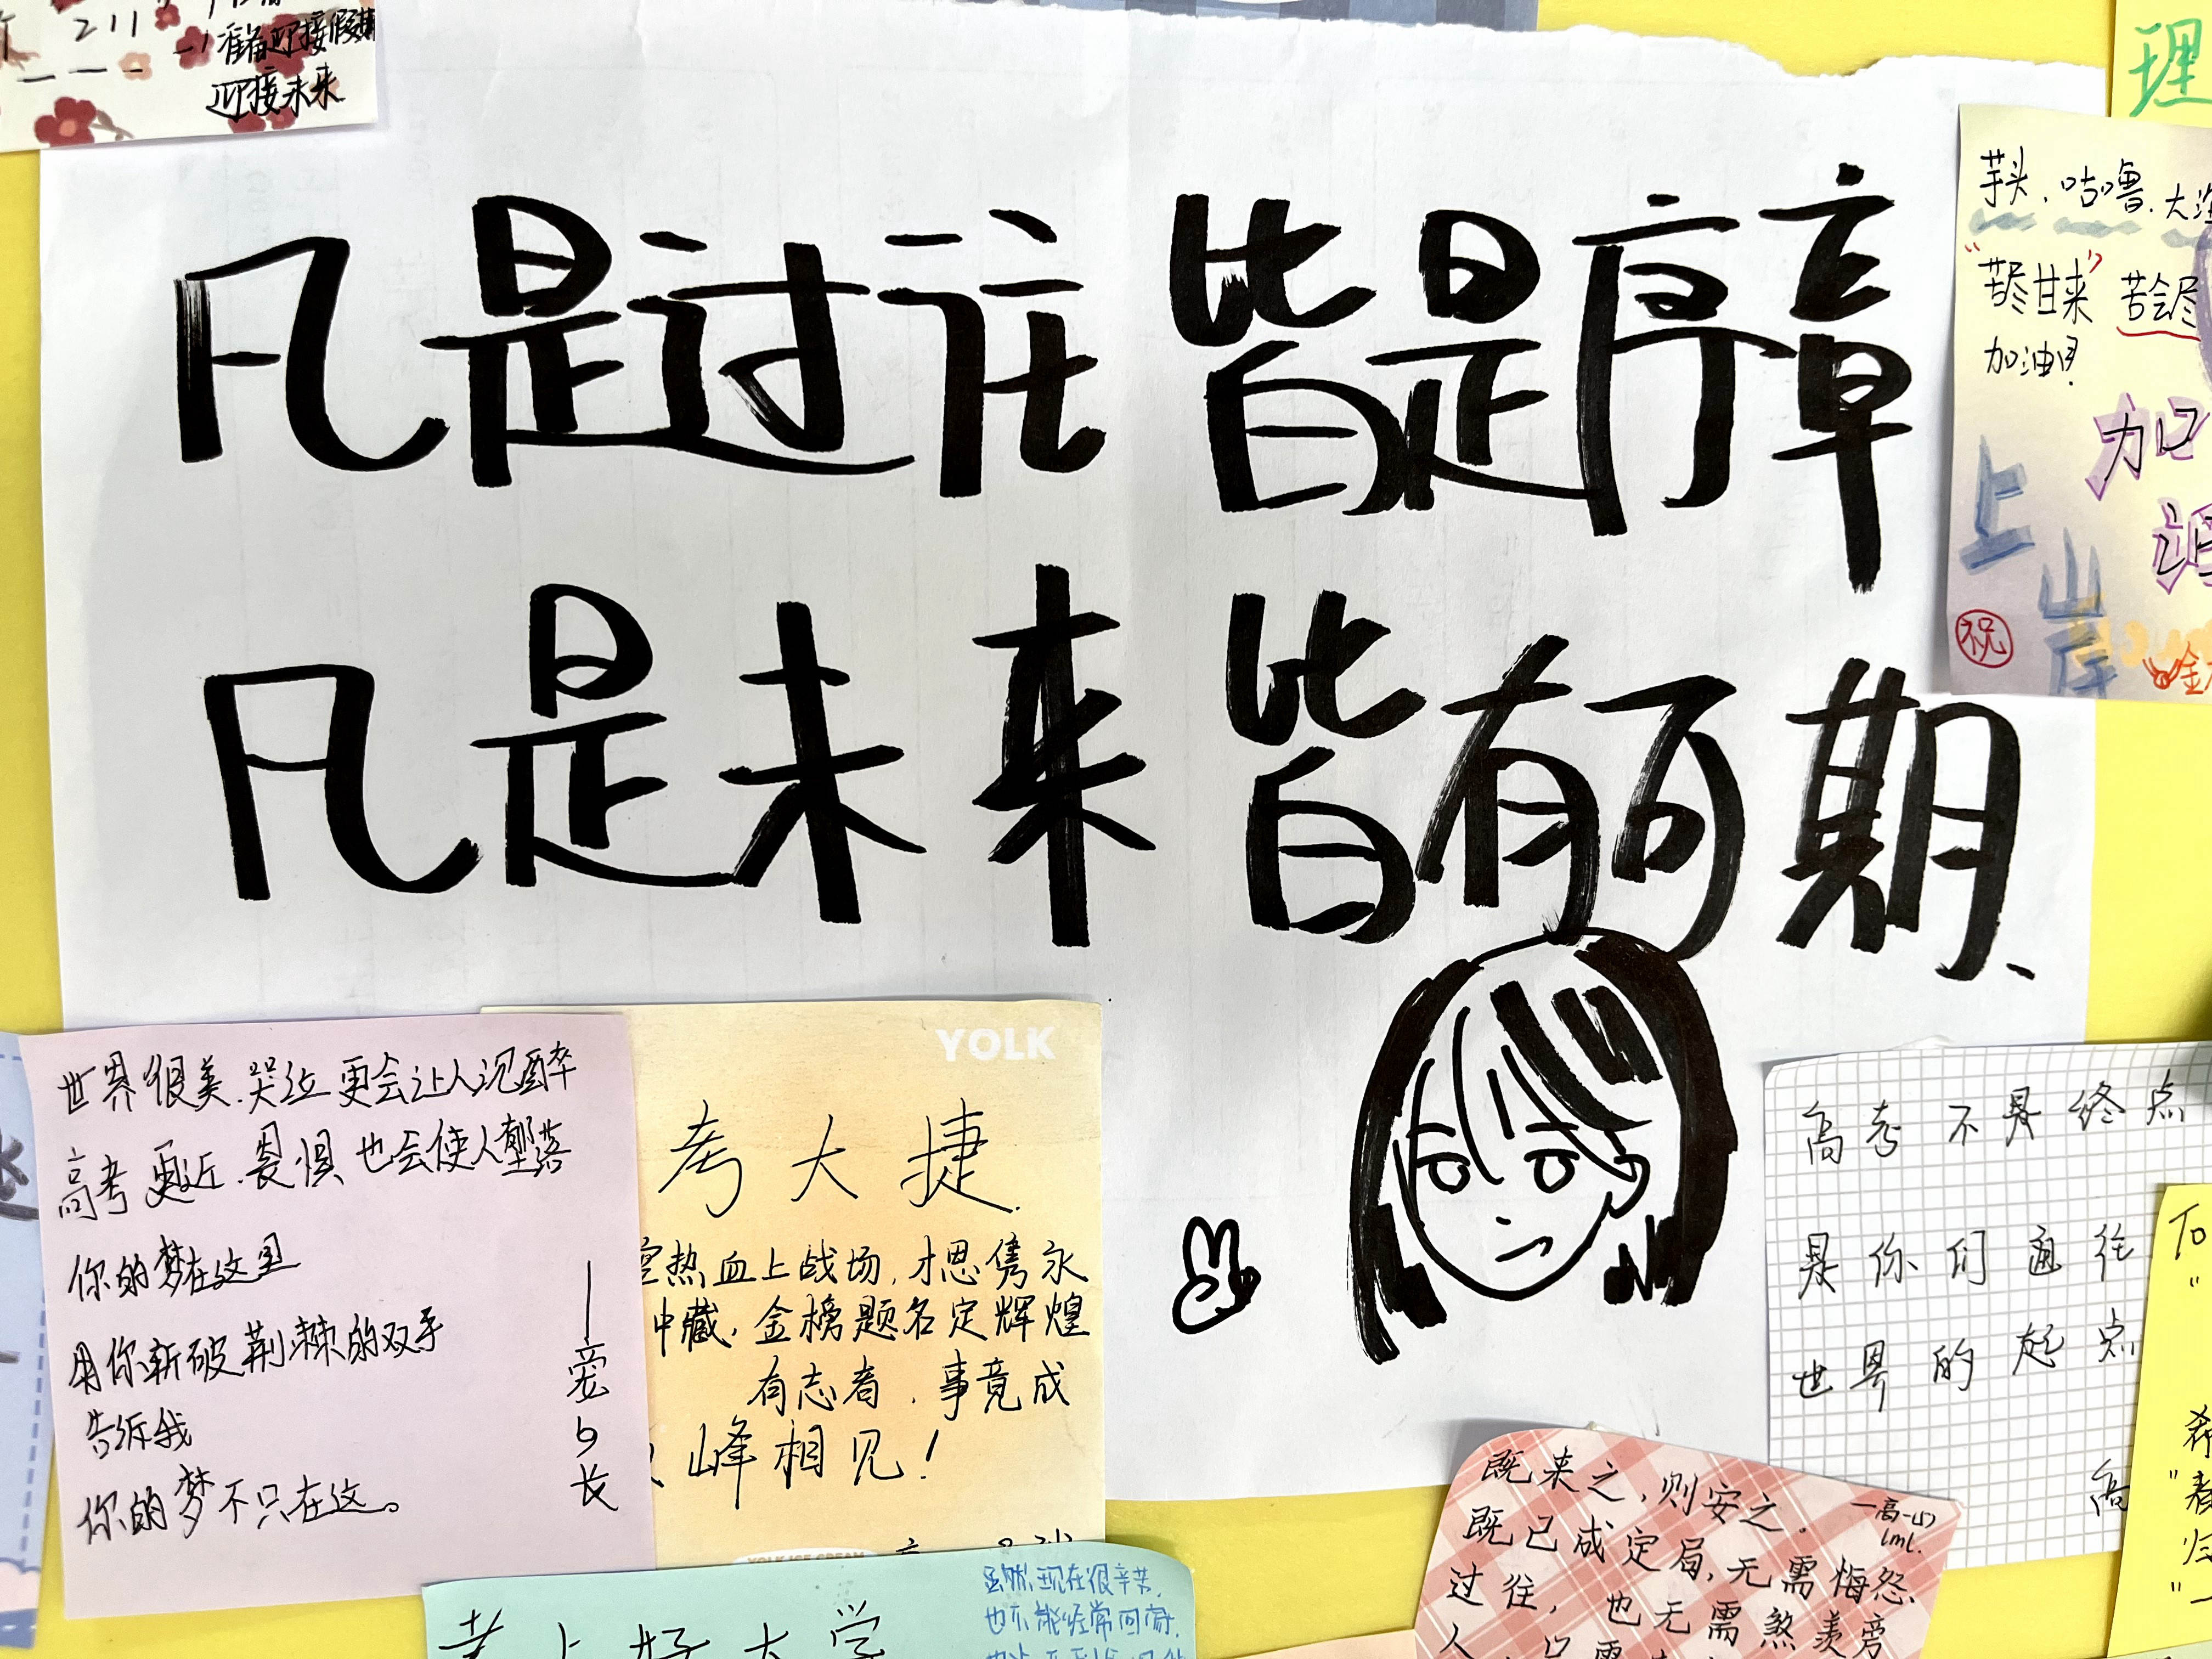 211
准备迎接假期
迎接未来
凡是过往 皆是序章
凡是未来 皆有可期、
理
芋头.咕噜.大
"苦尽甘来" 苦会尽
加油!
加
油
上
岸
祝
世界很美.哭泣更会让人沉醉
高考更近.畏惧也会使人坠落
你的梦在这里
用你斩破荆棘的双手
告诉我
你的梦不只在这。
YOLK
考大捷.
热血上战场,才思隽永
中藏,金榜题名定辉煌
有志者,事竟成
峰相见!
YOLK ICE CREAM
高考不是终点
是你们通往
世界的起点
高
To
希
归
既来之,则安之.
既已成定局,无需悔怨
过往,也无需羡旁
人
一高一(7)
lml.
考上好大学
虽然现在很辛苦,
也不能经常回家,